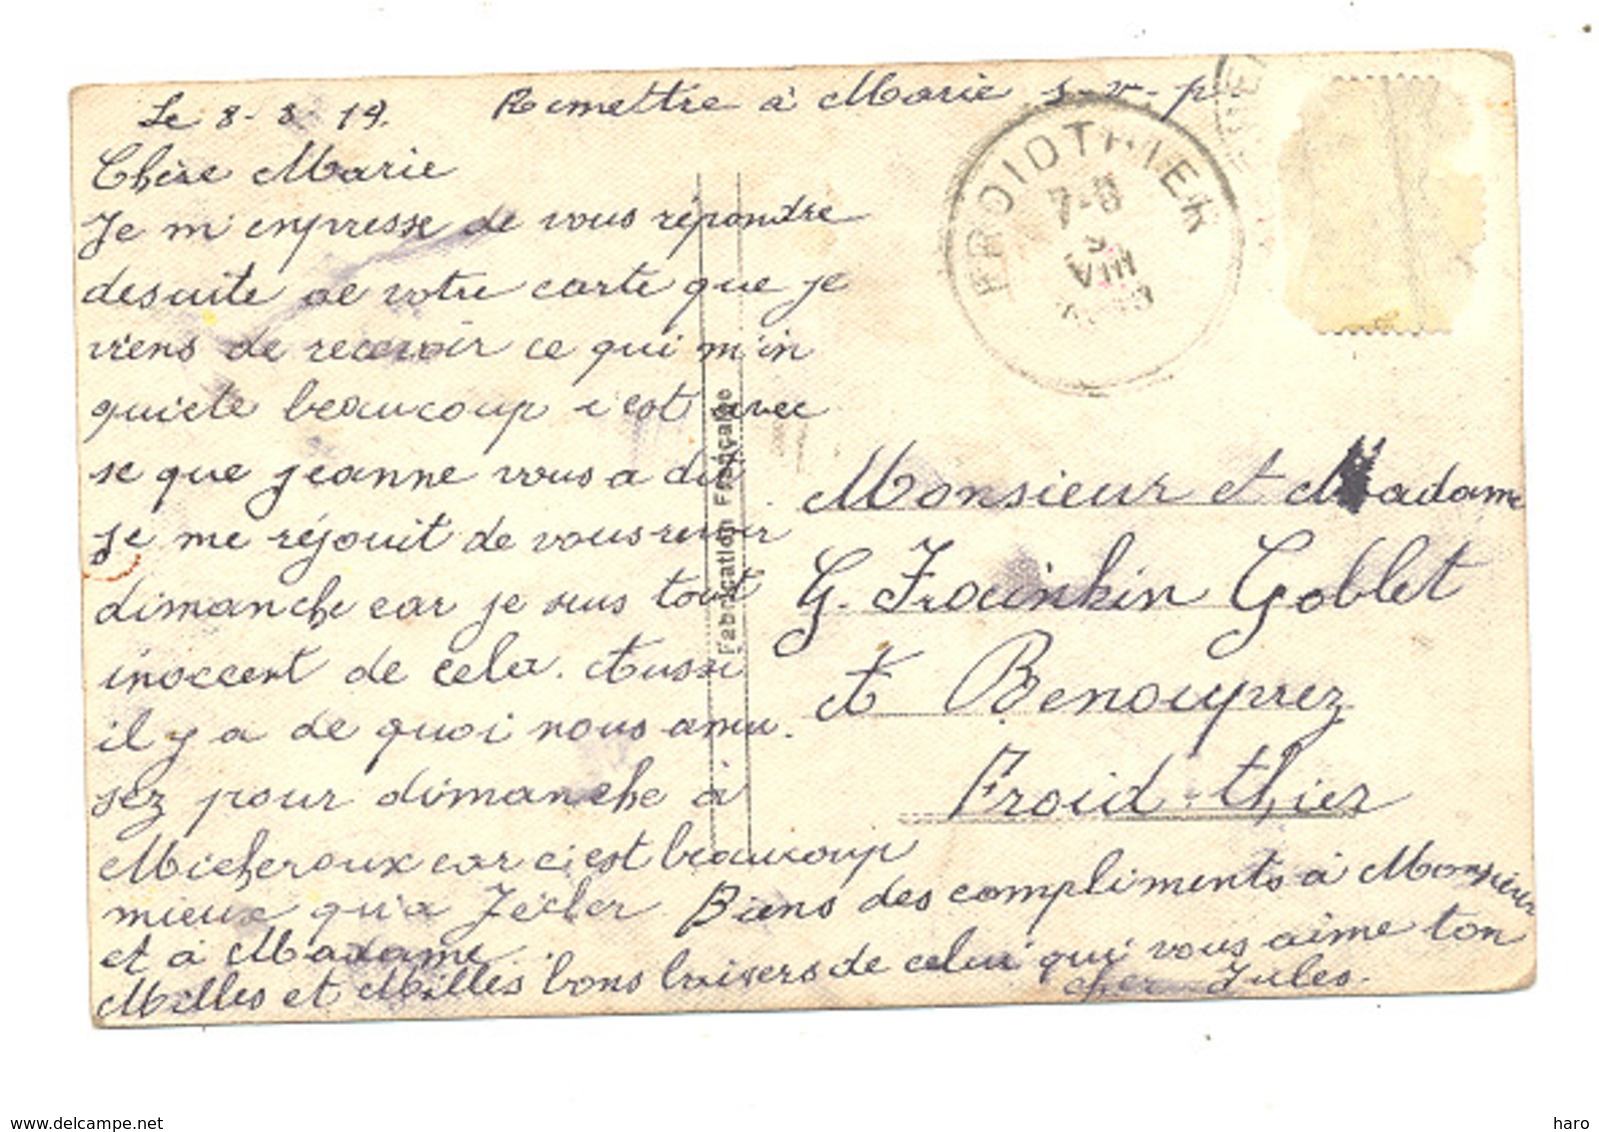 Le 8-8 19. Remettre à Marie s-v-p-
Chère Marie
Je m'enpresse de vous répondre
desuite de votre carte que je
viens de recevoir ce qui m'in
quiete beaucoup c'est avec
se que jeanne vous a dit
je me réjouit de vous revoir
dimanche car je suis tout
inoccent de cela. Aussi
il y a de quoi nous amu.
sez pour dimanche à
Micheroux car c'est beaucoup
mieux qu'a Jécler. Biens des compliments à Monsieur
et à Madame.
Milles et Milles bons baisers de celui qui vous aime ton
cher Jules.
FROIDTHIER
7-8
9
VIII
Fabrication Française
Monsieur et Madame
G. Frouinkin Goblet
A Benouprez
Froid-thier
delcampe.net
haro